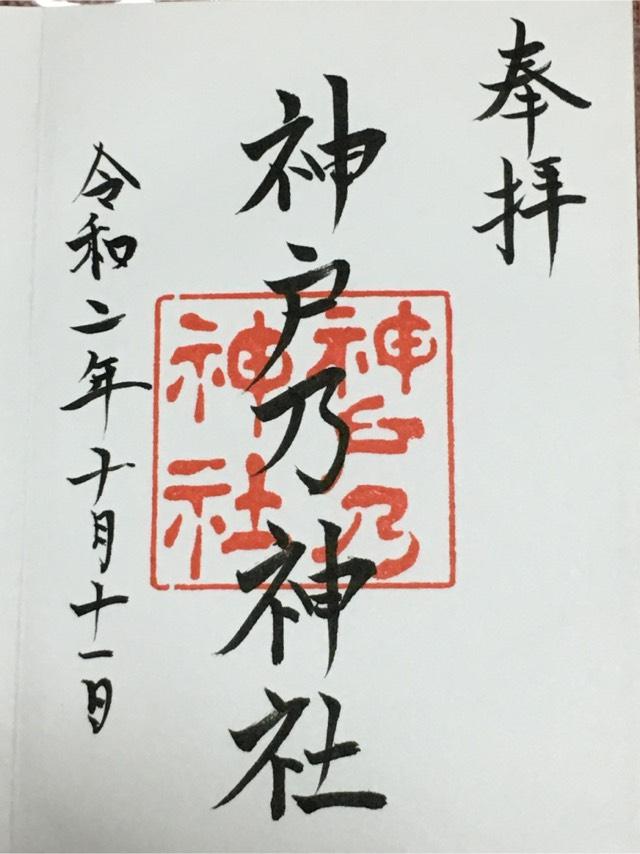 奉拝
神戸乃神社
神戸乃
神社
令和二年十月十一日